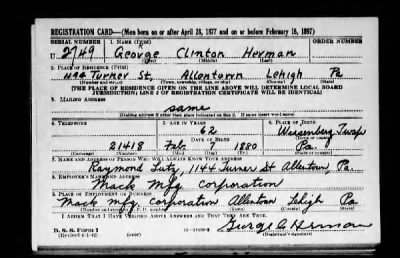 REGISTRATION CARD—(Men born on or after April 28, 1877 and on or before February 16, 1897)
SERIAL NUMBER 1. NAME (Print) ORDER NUMBER
U 2749 George Clinton Herman
(First) (Middle) (Last)
2. PLACE OF RESIDENCE (Print)
1144 Turner St, Allentown Lehigh Pa
(Number and street) (Town, township, village, or city) (County) (State)
[THE PLACE OF RESIDENCE GIVEN ON THE LINE ABOVE WILL DETERMINE LOCAL BOARD
JURISDICTION; LINE 2 OF REGISTRATION CERTIFICATE WILL BE IDENTICAL]
3. MAILING ADDRESS
same
[Mailing address if other than place indicated on line 2. If same insert word same]
4. TELEPHONE 5. AGE IN YEARS 6. PLACE OF BIRTH
62 Weisenberg Twsp
DATE OF BIRTH (Town or county)
21418 Feb. 7 1880 Pa.
(Exchange) (Number) (Mo.) (Day) (Yr.) (State or country)
7. NAME AND ADDRESS OF PERSON WHO WILL ALWAYS KNOW YOUR ADDRESS
Raymond Lutz, 1144 Turner St Allentown, Pa.
8. EMPLOYER'S NAME AND ADDRESS
Mack Mfg. Corporation
9. PLACE OF EMPLOYMENT OR BUSINESS
Mack Mfg. Corporation Allentown Lehigh Pa
(Number and street or R. F. D. number) (Town) (County) (State)
I AFFIRM THAT I HAVE VERIFIED ABOVE ANSWERS AND THAT THEY ARE TRUE.
D. S. S. Form 1
(Revised 4-1-42) (over)
George C Herman
(Registrant's signature)